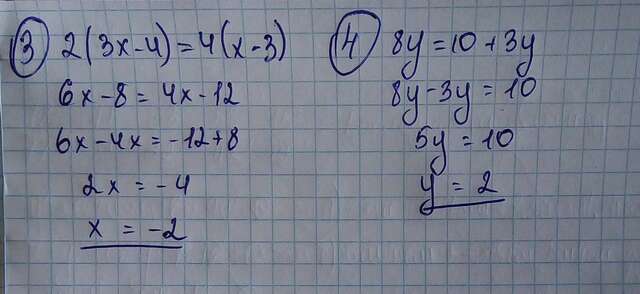 3 2(3x-4)=4(x-3)
6x-8=4x-12
6x-4x=-12+8
2x=-4
x=-2
4 8y=10+3y
8y-3y=10
5y=10
y=2